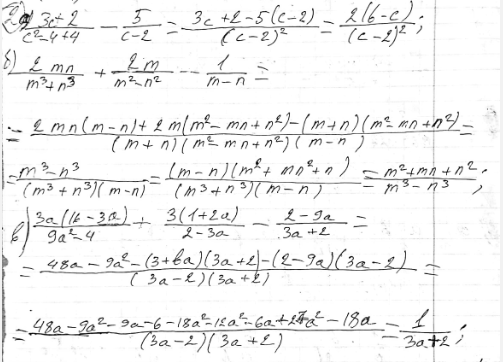 2a) (3c+2)/(c²-4+4) - 5/(c-2) = (3c+2-5(c-2))/((c-2)²) = 2(6-c)/((c-2)²);
б) 2mn/(m³+n³) + 2m/(m²-n²) - 1/(m-n) =
= (2mn(m-n)+2m(m²-mn+n²)-(m+n)(m²-mn+n²))/((m+n)(m²-mn+n²)(m-n)) =
= (m³-n³)/((m³+n³)(m-n)) = ((m-n)(m²+mn²+n))/((m³+n³)(m-n)) = (m²+mn+n²)/(m³-n³);
в) 3a(16-3a)/(9a²-4) + 3(1+2a)/(2-3a) - (2-9a)/(3a+2) =
= (48a-9a²-(3+6a)(3a+2)-(2-9a)(3a-2))/((3a-2)(3a+2)) =
= (48a-9a²-9a-6-18a²-12a²-6a+27a²-18a)/((3a-2)(3a+2)) = 1/(3a+2);